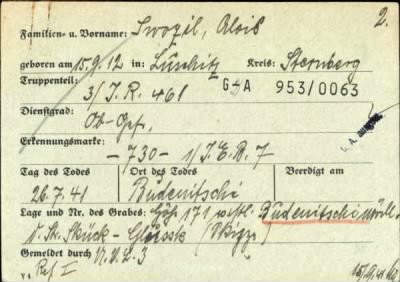 2.
Familien- u. Vorname: Swozil, Alois
geboren am 15.9.12 in: Lüschitz Kreis: Sternberg
Truppenteil: G-A 953/0063
3/ I.R. 461
Dienstgrad:
Ob-Gef.
Erkennungsmarke:
-730- 1/ I.E.B. 7
Tag des Todes Ort des Todes Beerdigt am
26.7.41 Budenitschi
Lage und Nr. des Grabes: Höh 171 westl. Budenitschi nördl.
d. Str. Skück-
Gemeldet durch
V 4 Ref I